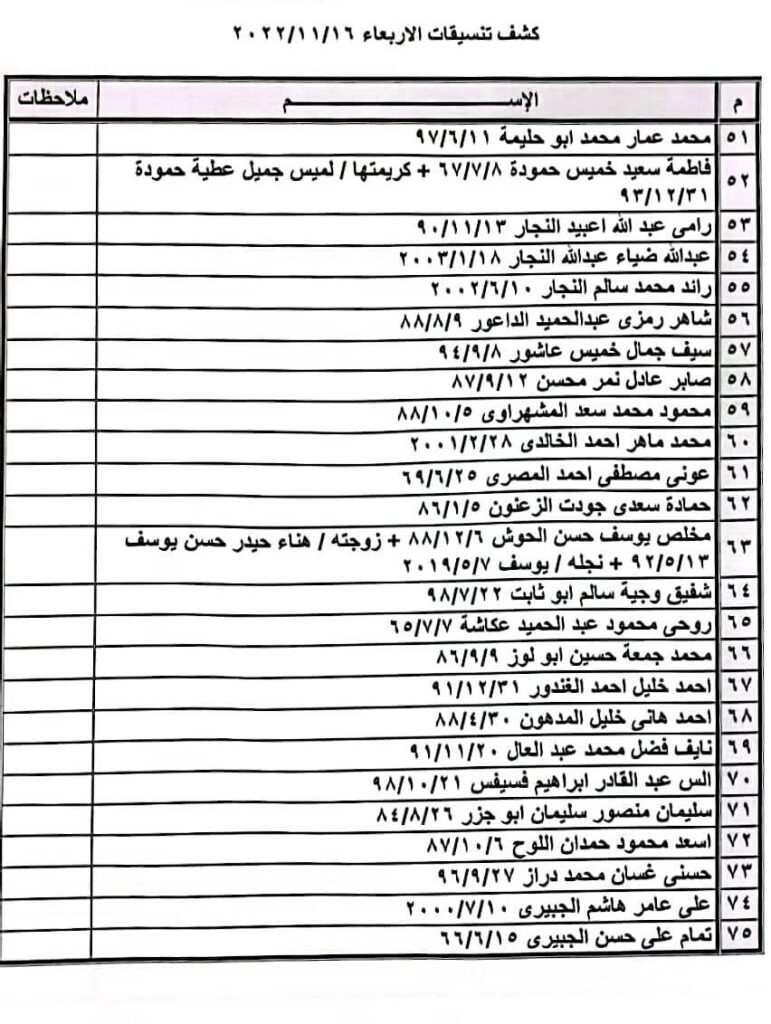 كشف تنسيقات الاربعاء ٢٠٢٢/١١/١٦
م الإســــــم ملاحظات
٥١ محمد عمار محمد ابو حليمة ٩٧/٦/١١
٥٢ فاطمة سعيد خميس حمودة ٦٧/٧/٨ + كريمتها / لميس جميل عطية حمودة
٩٣/١٢/٣١
٥٣ رامى عبد الله اعبيد النجار ٩٠/١١/١٣
٥٤ عبدالله ضياء عبدالله النجار ٢٠٠٣/١/١٨
٥٥ رائد محمد سالم النجار ٢٠٠٢/٦/١٠
٥٦ شاهر رمزى عبدالحميد الداعور ٨٨/٨/٩
٥٧ سيف جمال خميس عاشور ٩٤/٩/٨
٥٨ صابر عادل نمر محسن ٨٧/٩/١٢
٥٩ محمود محمد سعد المشهراوى ٨٨/١٠/٥
٦٠ محمد ماهر احمد الخالدى ٢٠٠١/٢/٢٨
٦١ عونى مصطفى احمد المصرى ٦٩/٦/٢٥
٦٢ حمادة سعدى جودت الزعنون ٨٦/١/٥
٦٣ مخلص يوسف حسن الحوش ٨٨/١٢/٦ + زوجته / هناء حيدر حسن يوسف
٩٢/٥/١٣ + نجله / يوسف ٢٠١٩/٥/٧
٦٤ شفيق وجية سالم ابو ثابت ٩٨/٧/٢٢
٦٥ روحى محمود عبد الحميد عكاشة ٦٥/٧/٧
٦٦ محمد جمعة حسين ابو لوز ٨٦/٩/٩
٦٧ احمد خليل احمد الغندور ٩١/١٢/٣١
٦٨ احمد هانى خليل المدهون ٨٨/٤/٣٠
٦٩ نايف فضل محمد عبد العال ٩١/١١/٢٠
٧٠ الس عبد القادر ابراهيم فسيفس ٩٨/١٠/٢١
٧١ سليمان منصور سليمان ابو جزر ٨٤/٨/٢٦
٧٢ اسعد محمود حمدان اللوح ٨٧/١٠/٦
٧٣ حسنى غسان محمد دراز ٩٦/٩/٢٧
٧٤ على عامر هاشم الجبيرى ٢٠٠٠/٧/١٠
٧٥ تمام على حسن الجبيرى ٦٦/٦/١٥